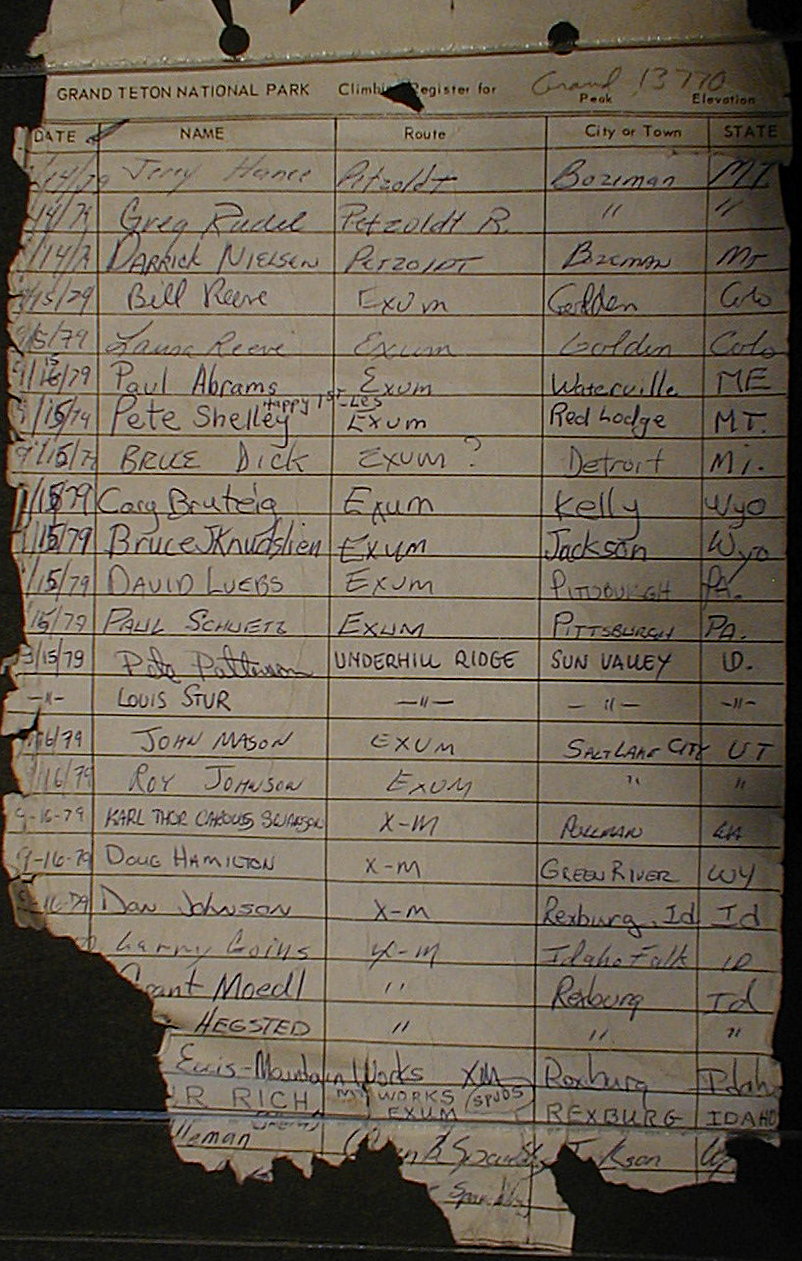 GRAND TETON NATIONAL PARK Climbing Register for Grand 13770
Peak Elevation
DATE NAME Route City or Town STATE
/14/79 Jerry Hance Petzoldt Bozeman MT.
/14/79 Greg Petzoldt R. " "
/14/7 DARRICK NIELSEN PETZOLDT BOZEMAN MT
/15/79 Bill Reeve Exum Golden Colo
9/15/79 Laura Reeve Exum Golden Colo
15
/16/79 Paul Abrams Exum Waterville ME
Happy 1ST-LES
/15/79 Pete Shelley EXUM Red Lodge MT.
9/15/7 BRUCE DICK EXUM ? Detroit Mi.
/15/79 Cary Bruteig Exum Kelly Wyo
/15/79 Bruce J Exum Jackson Wyo
/15/79 DAVID LUEBS EXUM PITTSBURGH PA.
/15/79 PAUL SCHWETZ EXUM PITTSBURGH PA.
/15/79 Pete Patterson UNDERHILL RIDGE SUN VALLEY ID.
-"- LOUIS STUR -"- -"- -"-
/16/79 JOHN MASON EXUM SALT LAKE CITY UT
/16/79 ROY JOHNSON EXUM " "
9-16-79 KARL THOR SWANSON X-M PULLMAN
9-16-79 DOUG HAMILTON X-M GREEN RIVER WY
-16-79 Dan Johnson X-M Rexburg, Id Id
Larry Goins X-M Idaho Falls ID
Grant Moedl " Rexburg Id
HEGSTED " " "
-Mountain Works XM Rexburg Idaho
R RICH MT WORKS (SPUDS
EXUM REXBURG IDAHO
lleman Jackson Wy